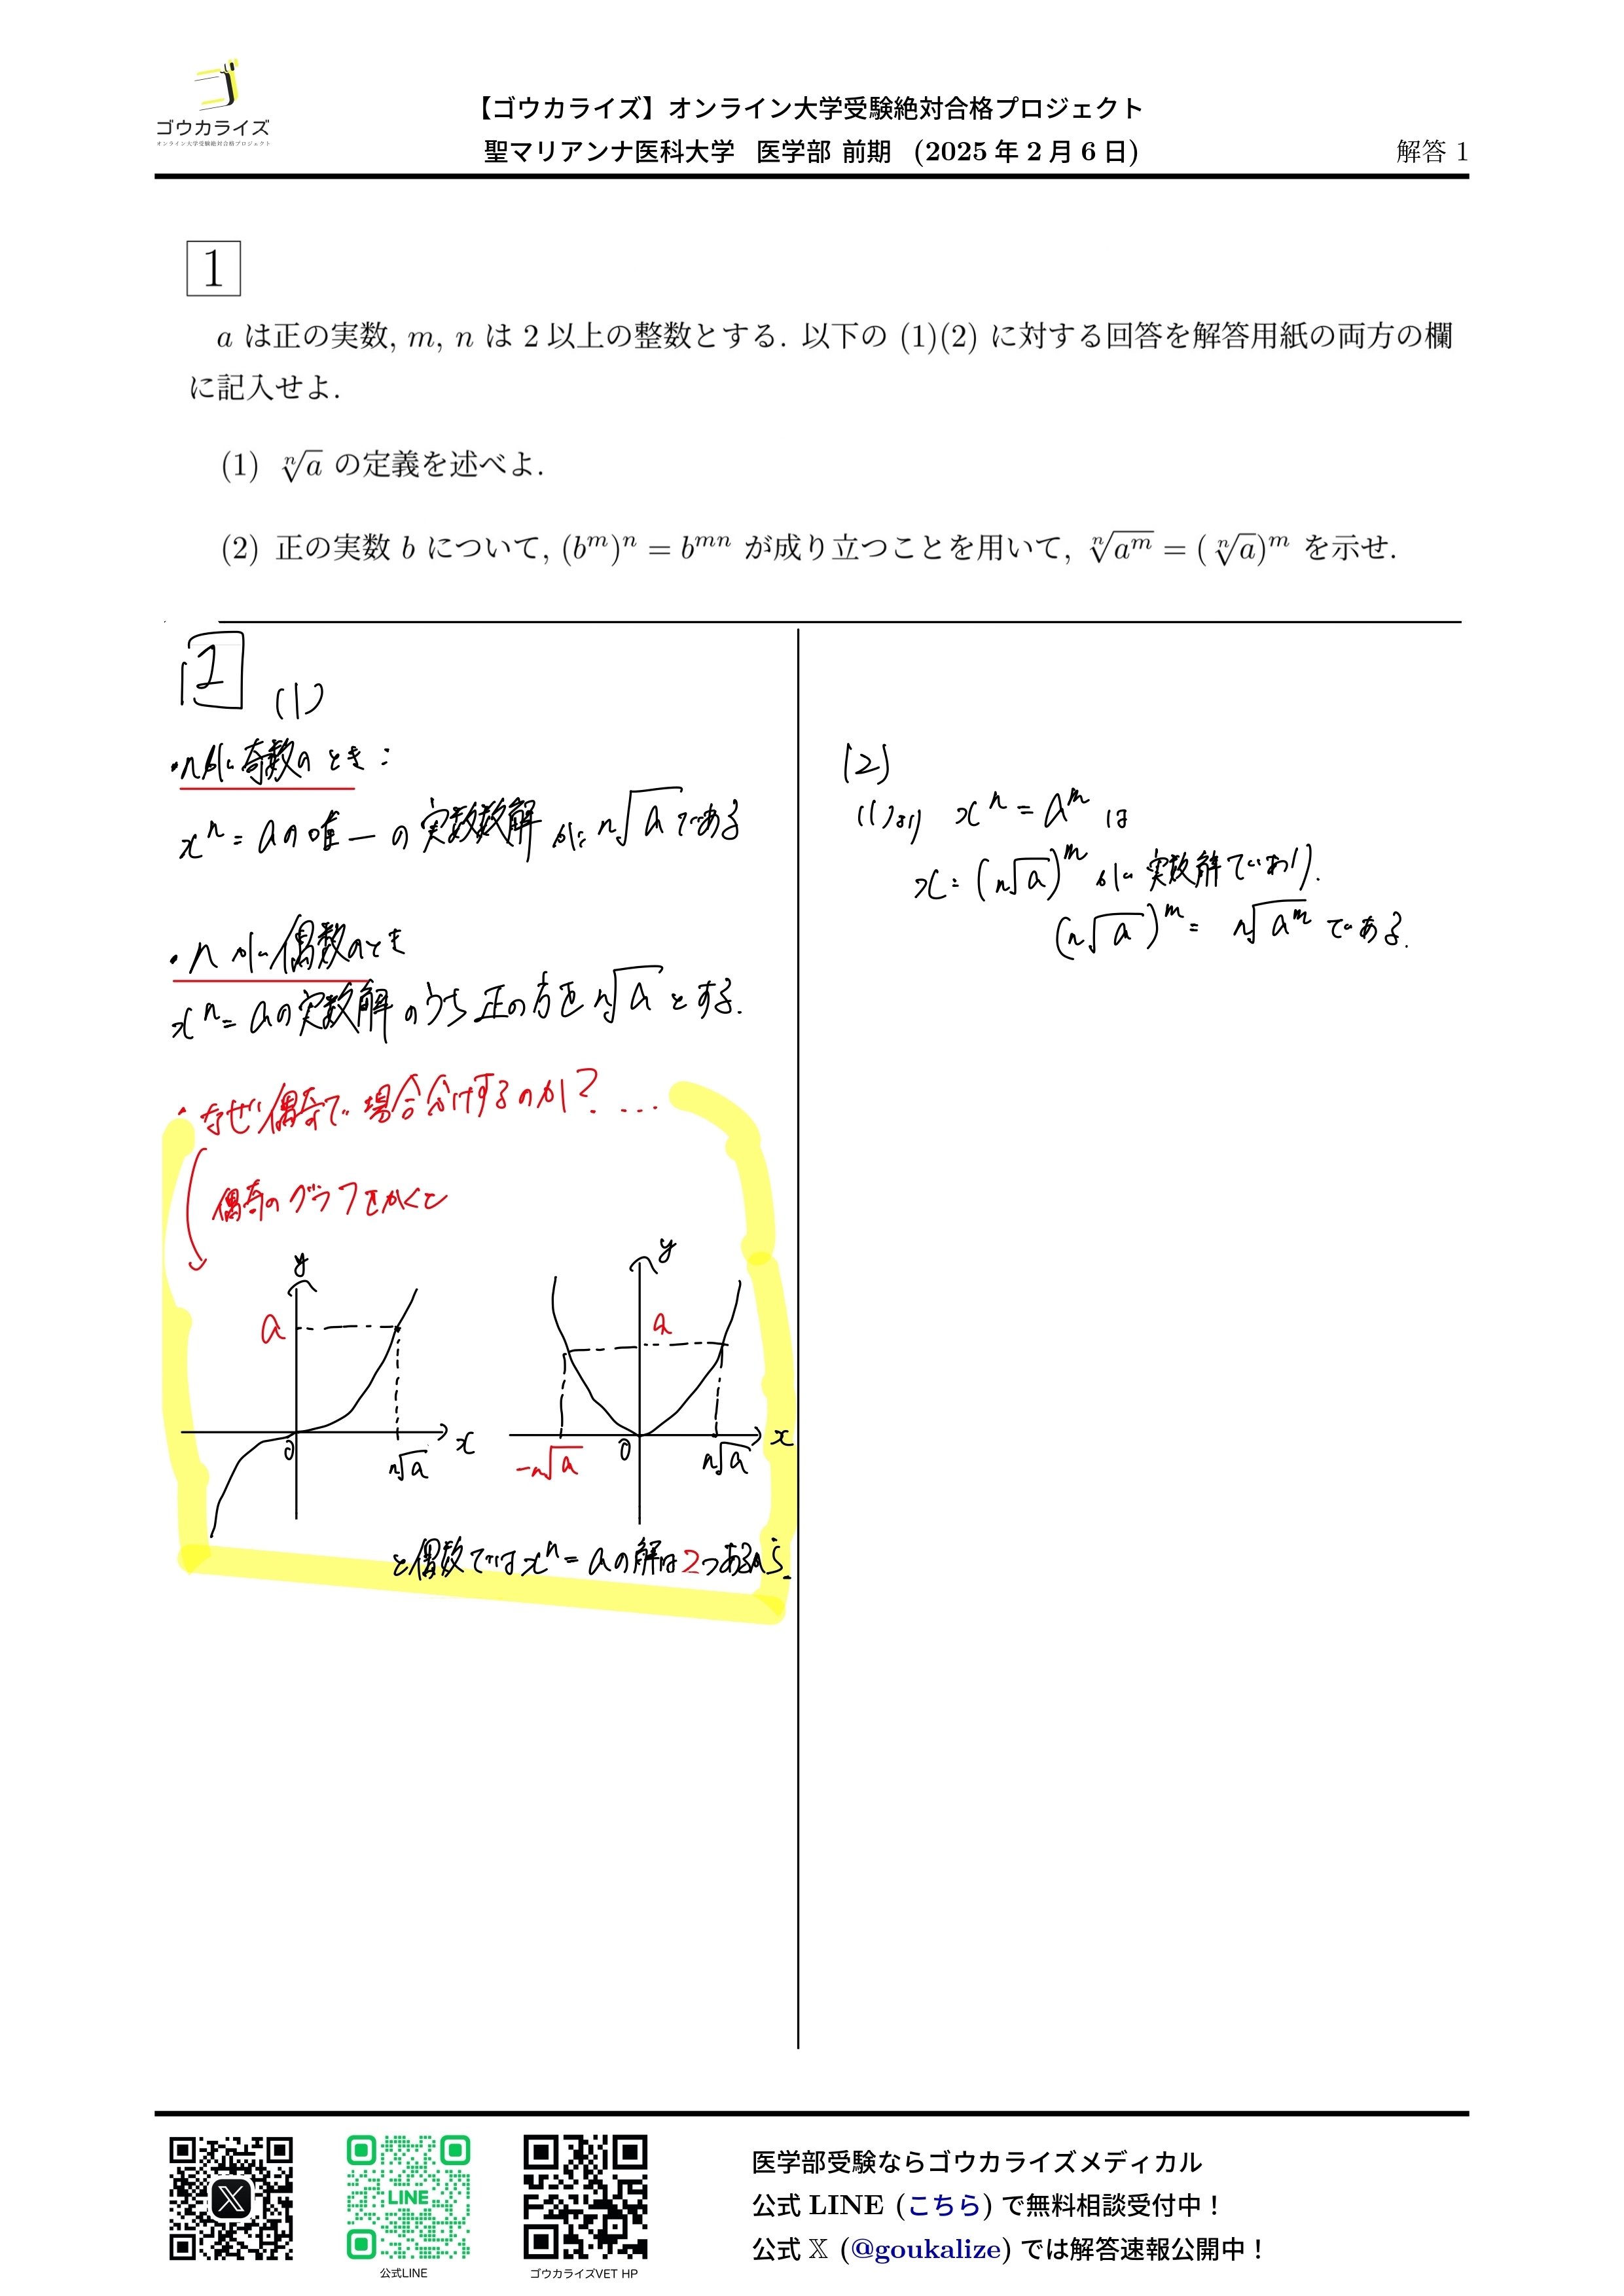 ゴウカライズ
オンライン大学受験絶対合格プロジェクト
【ゴウカライズ】オンライン大学受験絶対合格プロジェクト
聖マリアンナ医科大学 医学部 前期 (2025年2月6日)
解答 1
1
a は正の実数, m, n は 2 以上の整数とする. 以下の (1)(2) に対する回答を解答用紙の両方の欄
に記入せよ.
(1) ⁿ√a の定義を述べよ.
(2) 正の実数 b について, (bᵐ)ⁿ = bᵐⁿ が成り立つことを用いて, ⁿ√aᵐ = (ⁿ√a)ᵐ を示せ.
1
(1)
・nが奇数のとき:
xⁿ = aの唯一の実数数解がⁿ√aである
・nが偶数のとき
xⁿ = aの実数解のうち正の方をⁿ√aとする.
・なぜ偶奇で場合分けするのか?....
偶奇のグラフをかくと
y
a
0
x
ⁿ√a
y
a
-ⁿ√a
0
ⁿ√a
x
と偶数ではxⁿ = aの解は2つあるから.
(2)
(1)より xⁿ = aᵐ は
x = (ⁿ√a)ᵐ が実数解であり.
(ⁿ√a)ᵐ = ⁿ√aᵐ である.
X
LINE
公式LINE
ゴウカライズVET HP
医学部受験ならゴウカライズメディカル
公式 LINE (こちら) で無料相談受付中!
公式 𝕏 (@goukalize) では解答速報公開中!